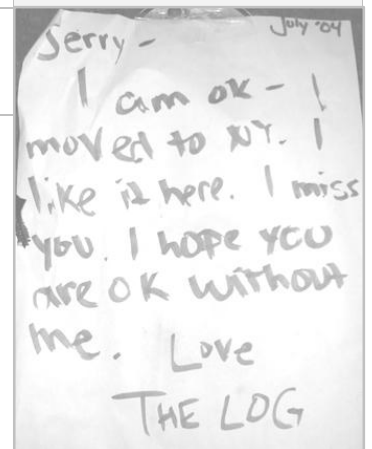 July '04
Jerry -
I am ok - I
moved to NY. I
like it here. I miss
you. I hope you
are OK without
me. Love
THE LOG